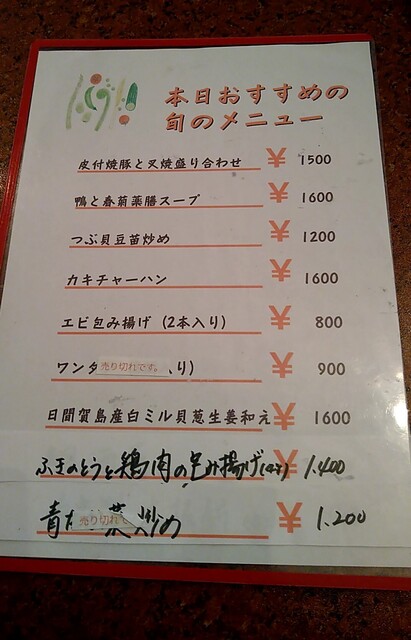 本日おすすめの
旬のメニュー
皮付焼豚と叉焼盛り合わせ ¥ 1500
鴨と春菊薬膳スープ ¥ 1600
つぶ貝豆苗炒め ¥ 1200
カキチャーハン ¥ 1600
エビ包み揚げ (2本入り) ¥ 800
ワンタ 売り切れです。 入り) ¥ 900
日間賀島産白ミル貝葱生姜和え ¥ 1600
ふきのとうと鶏肉の包み揚げ ¥ 1.400
青 売り切れで 菜炒め ¥ 1.200